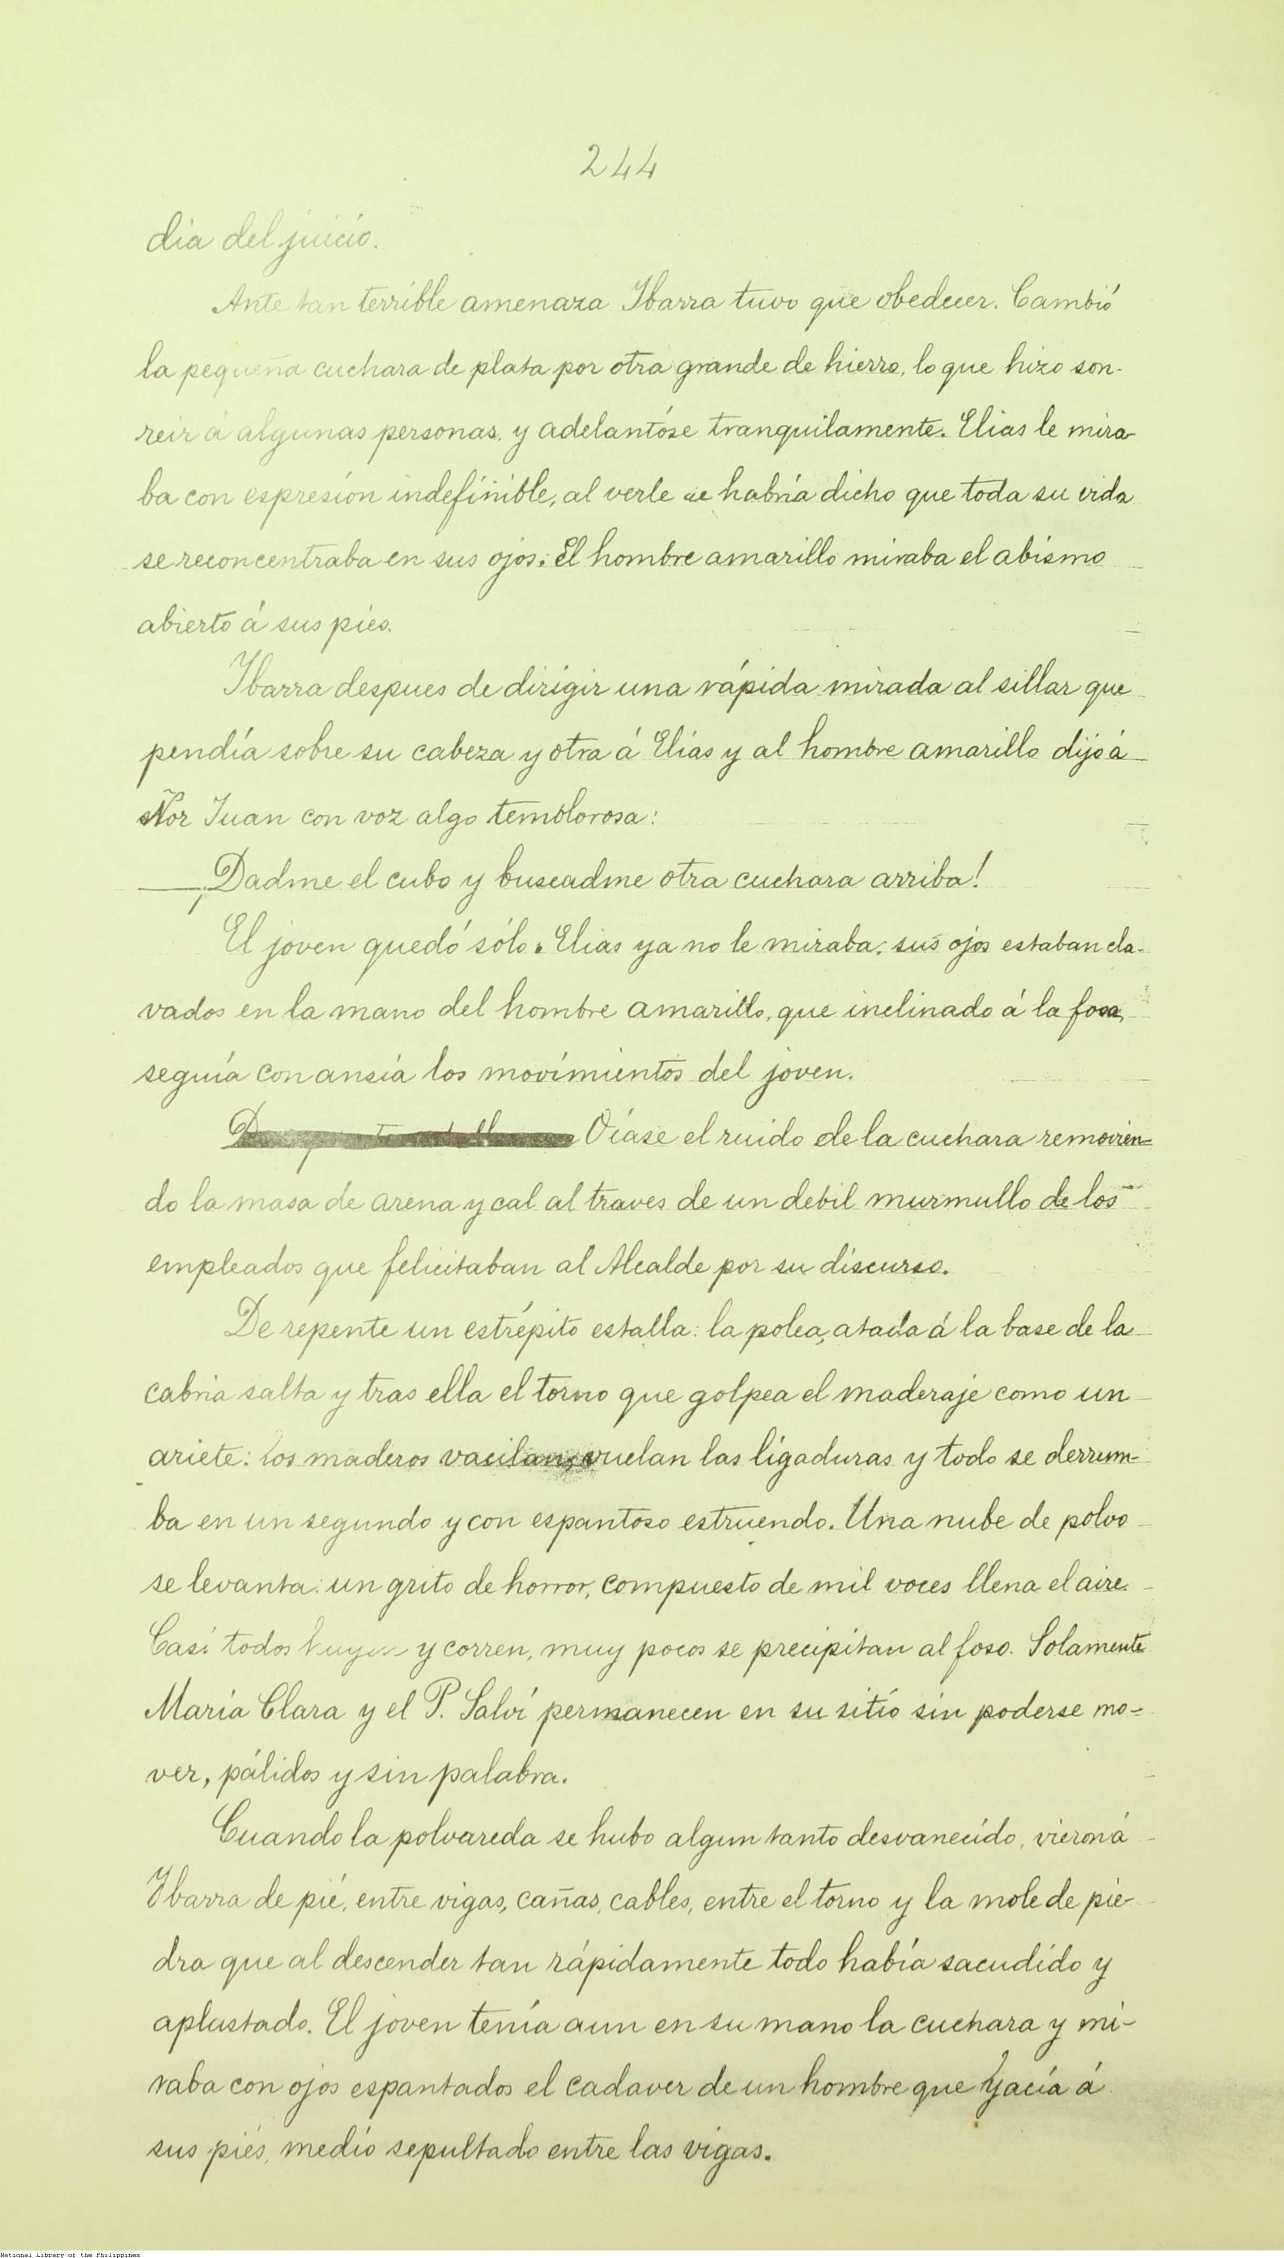 244
dia del juicio.
Ante tan terrible amenaza Ibarra tuvo que obedecer. Cambió
la pequeña cuchara de plata por otra grande de hierro, lo que hizo son-
reir á algunas personas, y adelantóse tranquilamente. Elias le mira-
ba con espresión indefinible, al verle se habría dicho que toda su vida
se reconcentraba en sus ojos. El hombre amarillo miraba el abismo
abierto á sus pies.
Ibarra despues de dirigir una rápida mirada al sillar que
pendía sobre su cabeza y otra á Elías y al hombre amarillo dijo á
Ñor Juan con voz algo temblorosa:
—¡Dadme el cubo y buscadme otra cuchara arriba!
El joven quedó sólo. Elias ya no le miraba: sus ojos estaban cla-
vados en la mano del hombre amarillo, que inclinado á la fosa,
seguía con ansia los movimientos del joven.
Oíase el ruido de la cuchara removien-
do la masa de arena y cal al traves de un debil murmullo de los
empleados que felicitaban al Alcalde por su discurso.
De repente un estrépito estalla: la polea, atada á la base de la
cabria salta y tras ella el torno que golpea el maderaje como un
ariete: los maderos vacilan, vuelan las ligaduras y todo se derrum-
ba en un segundo y con espantoso estruendo. Una nube de polvo
se levanta: un grito de horror, compuesto de mil voces llena el aire.
Casi todos huyen y corren, muy pocos se precipitan al foso. Solamente
María Clara y el P. Salví permanecen en su sitio sin poderse mo-
ver, pálidos y sin palabra.
Cuando la polvareda se hubo algun tanto desvanecido, vieron á
Ibarra de pié, entre vigas, cañas, cables, entre el torno y la mole de pie-
dra que al descender tan rápidamente todo había sacudido y
aplastado. El joven tenía aun en su mano la cuchara y mi-
raba con ojos espantados el cadaver de un hombre que yacía á
sus piés, medio sepultado entre las vigas.
National Library of the Philippines